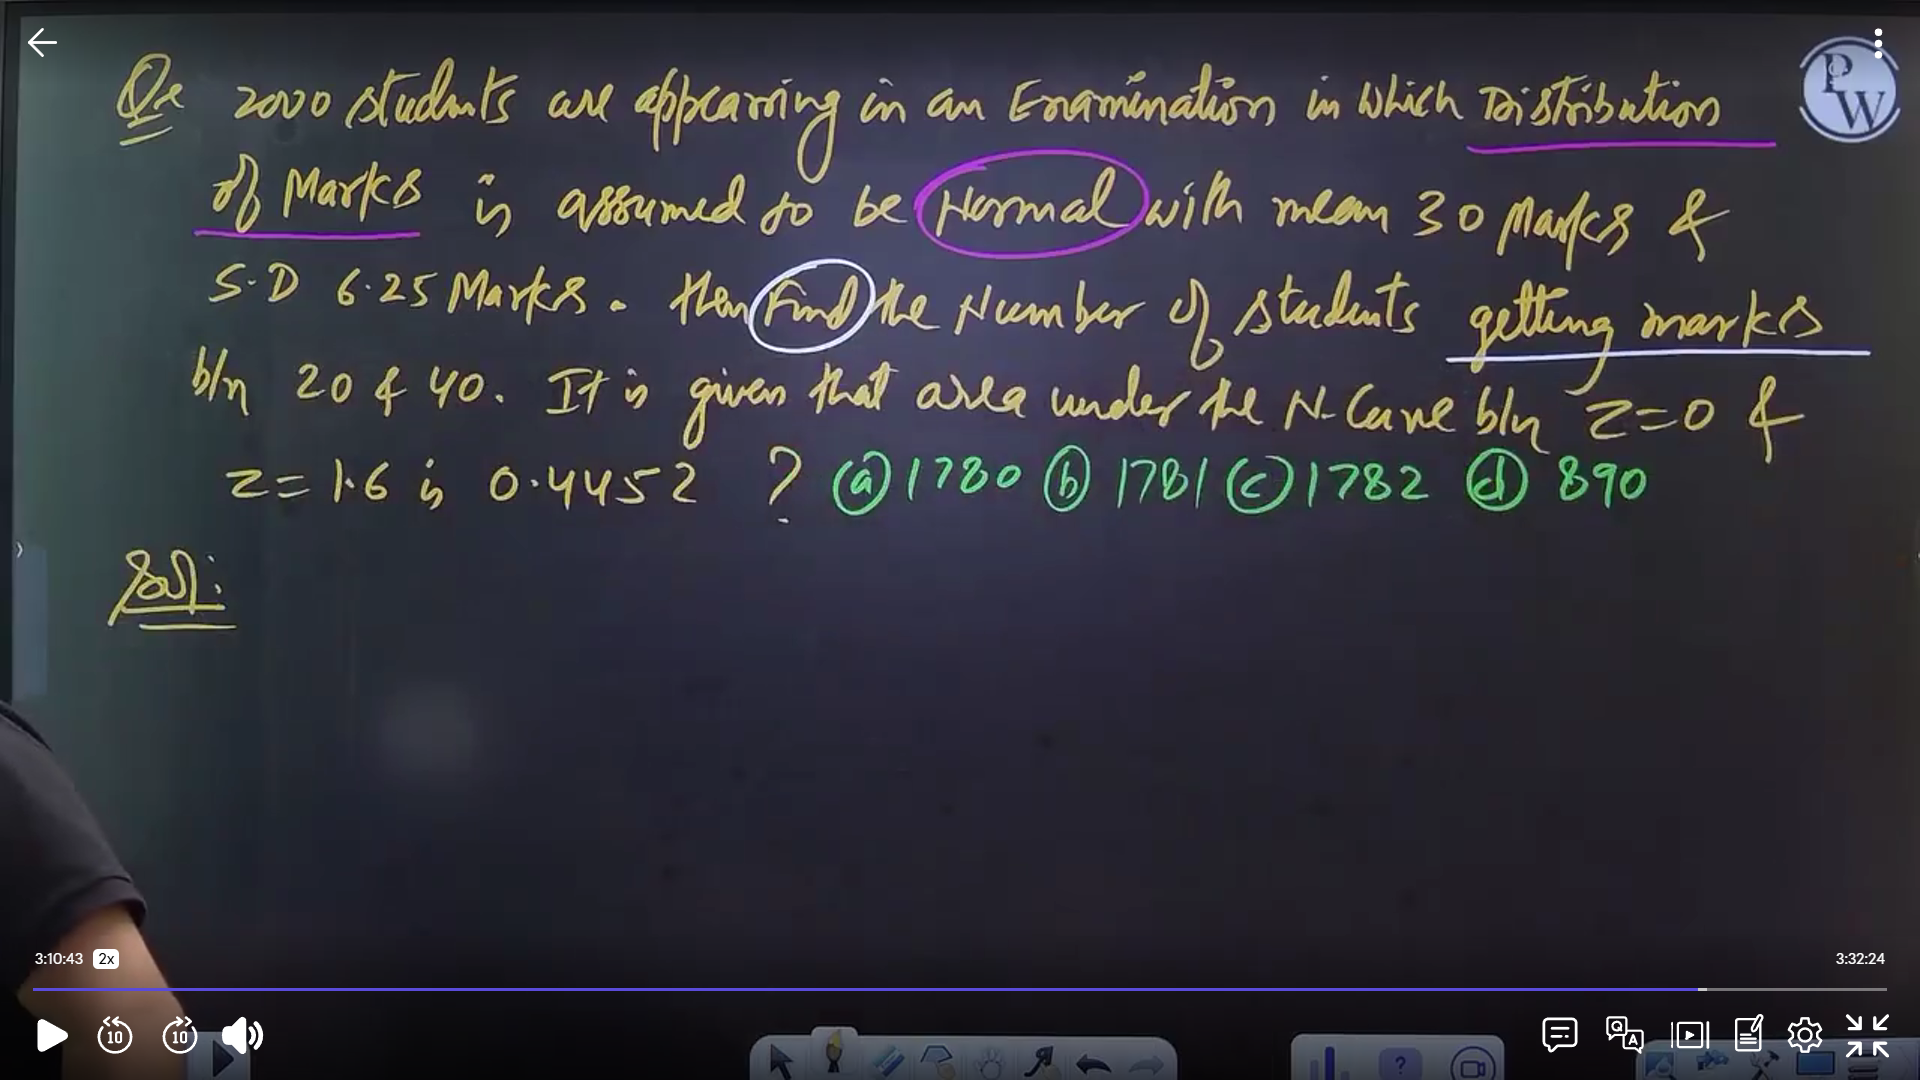 Qs 2000 students are appearring in an Examination in which Distribution
of Marks is assumed to be Normal with mean 30 Marks &
S.D 6.25 Marks. then Find the Number of students getting marks
b/n 20 & 40. It is given that area under the N-Curve b/n z=0 &
z=1.6 is 0.4452 ? (a) 1780 (b) 1781 (c) 1782 (d) 890
Sol:
PW
3:10:43 2x
3:32:24
10 10